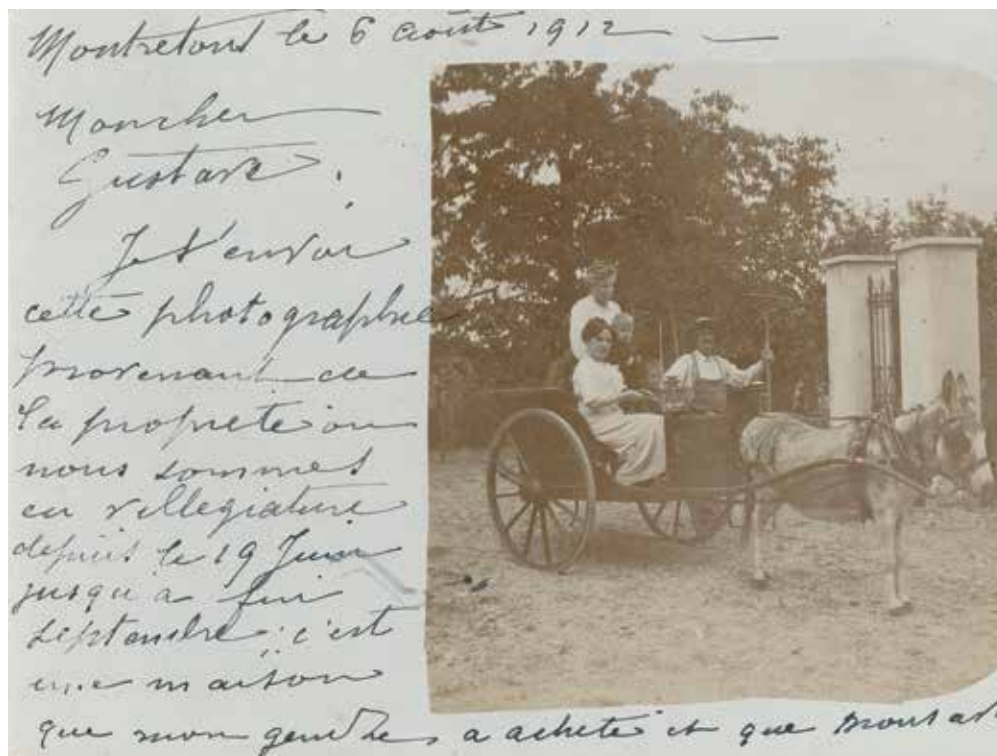 Montretout le 6 août 1912
Mon cher
Gustave.
Je t'envoi
cette photographie
provenant de
la propriete ou
nous sommes
en villegiature
depuis le 19 Juin
jusqu'a fin
septembre; c'est
une maison
que mon gendre a acheté et que